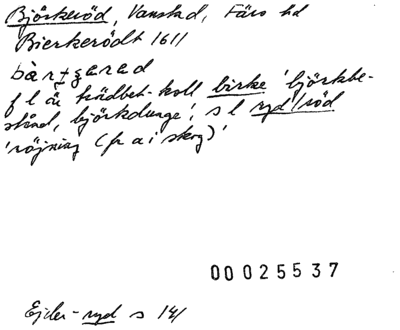 Björkeröd, Vanstad, Färs hd
Bierkerödt 1611
f l är trädbet.koll birke 'björkbe-
stånd, björkdunge', s l ryd/röd
'röjning (fr a i skog)'
00025537
Ejder-ryd s 141